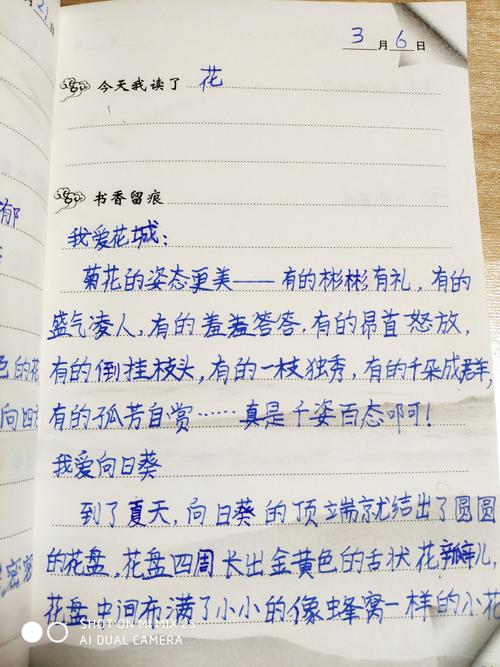 月21日
3月6日
今天我读了 花
书香留痕
我爱花城:
菊花的姿态更美——有的彬彬有礼,有的
盛气凌人,有的羞羞答答,有的昂首怒放,
有的倒挂枝头,有的一枝独秀,有的千朵成群,
有的孤芳自赏……真是千姿百态叩可!
我爱向日葵
到了夏天,向日葵的顶端就结出了圆圆
的花盘,花盘四周长出金黄色的舌状花瓣儿,
花盘中间布满了小小的像蜂窝一样的小花
郁
色的花
向四
SHOT ON MI MIX 2S
AI DUAL CAMERA